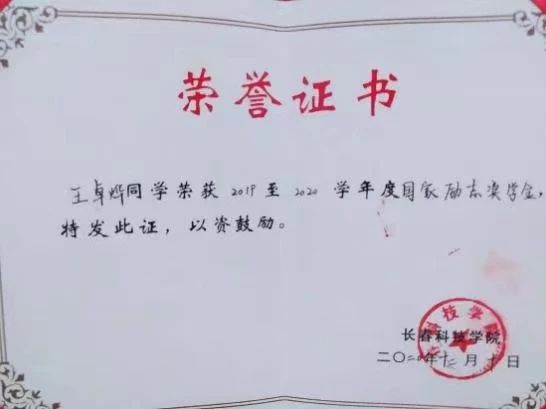 荣誉证书
王卓烨同学荣获2019至2020学年度国家励志奖学金,
特发此证,以资鼓励。
长春科技学院
二〇二〇年十二月十日